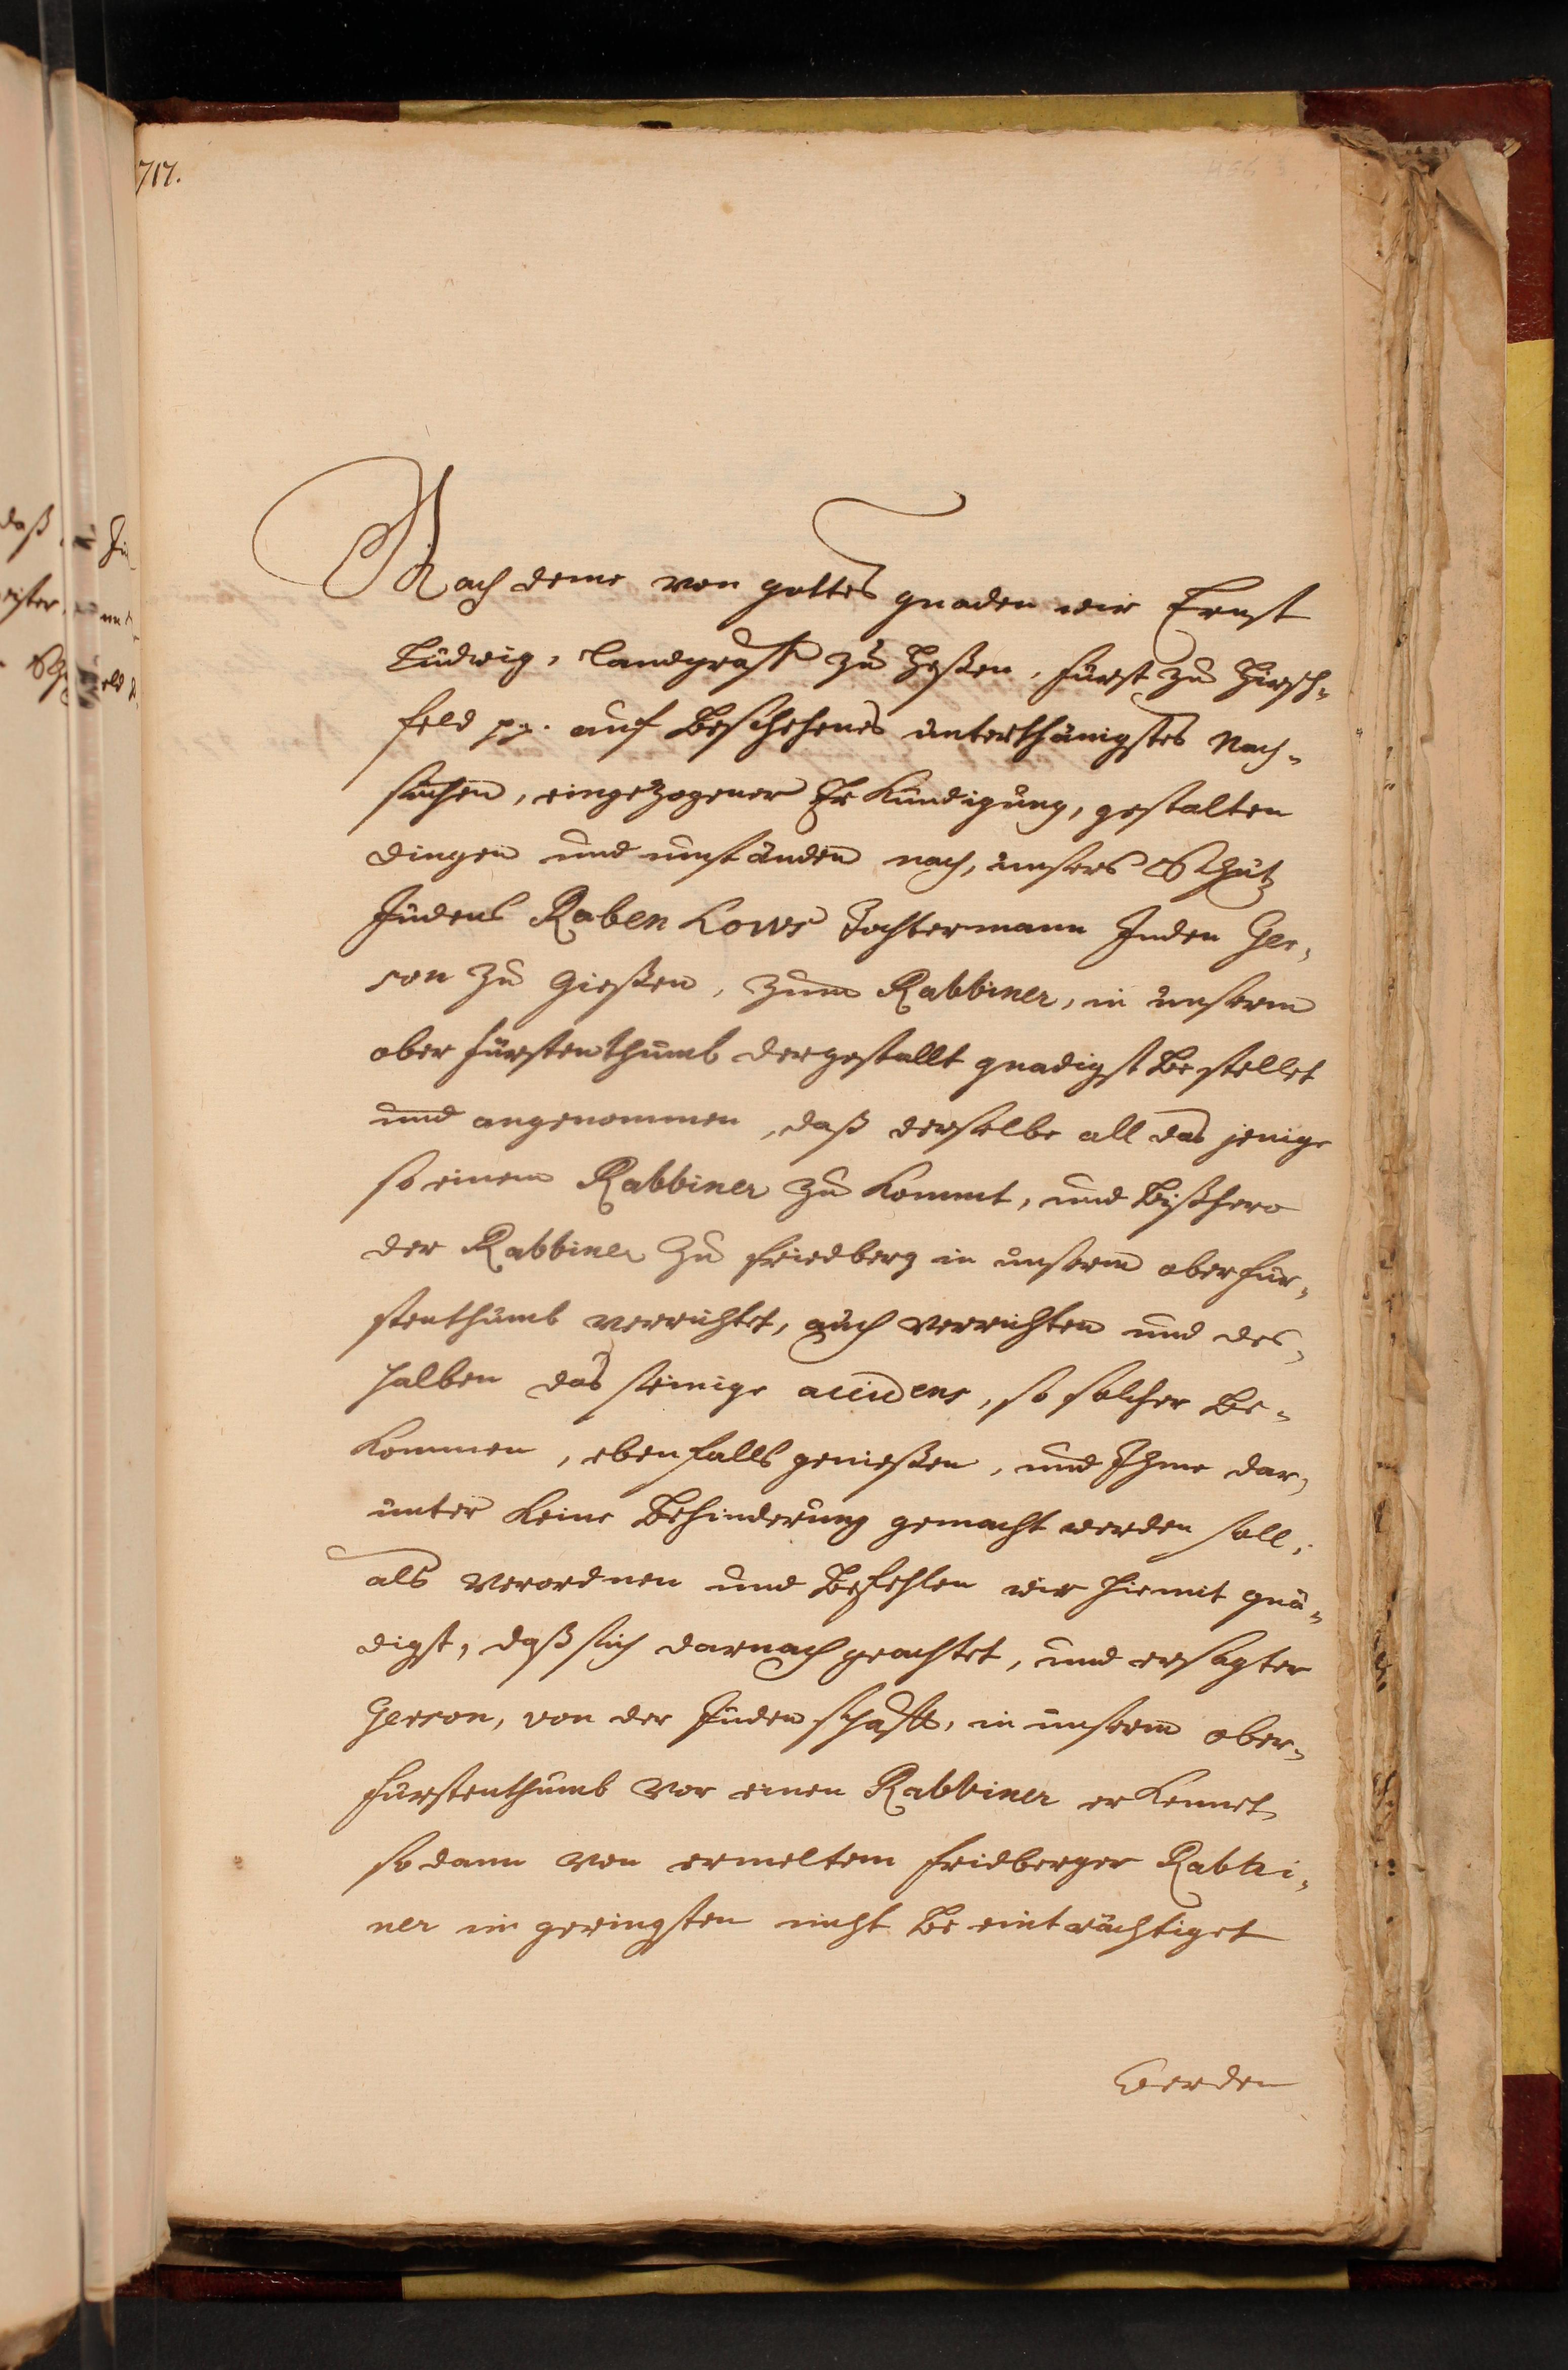 717.
Nach deme von gottes gnaden wir Ernst
Ludwig, Landgraff zu Heßen, Fürst zu Hirsch-
feld pp. auf Beschehenes unterthänigstes Nach-
suchen, eingezogener Erkundigung, gestalten
dingen und umständen nach, unsers Schutz
Judens Raben Löws Tochtermann Juden Ger-
son zu Gießen, zum Rabbiner, in unserm
ober fürstenthumb dergestallt gnädigst Bestellet
und angenommen, daß derselbe all das jenige
so einem Rabbiner zu kommt, und Bißhero
der Rabbiner zu friedberg in unserm oberfür-
stenthumb verrichtet, auch verrichten und des-
halben das seinige accidens, so solcher Be-
kommen, ebenfalls genießen, und Ihme dar-
unter keine Behinderung gemacht werden soll;
als verordnen und Befehlen wir hiemit gnä-
digst, daß sich darnach geachtet, und ersagter
Gerson, von der Judenschafft, in unserm ober-
fürstenthumb vor einen Rabbiner erkennet,
so dann von ermeltem fridberger Rabbi-
ner im geringsten nicht Beeinträchtiget
werden